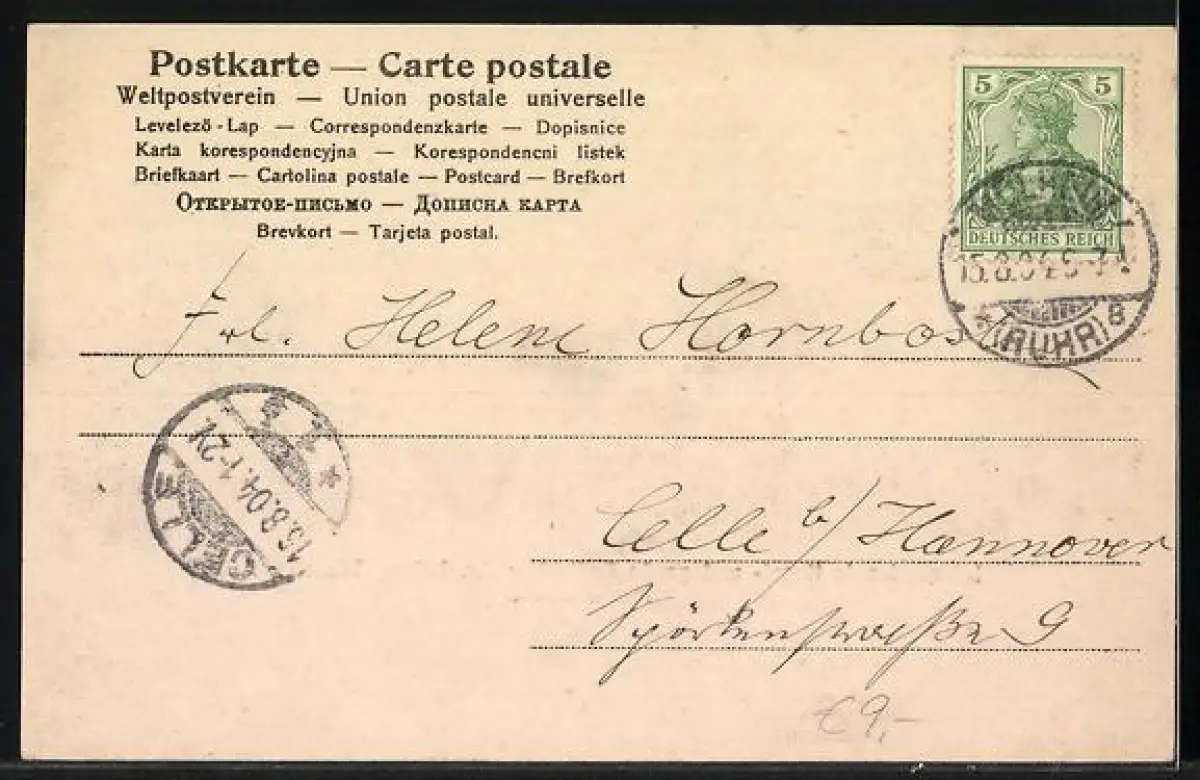 Postkarte — Carte postale
Weltpostverein — Union postale universelle
Levelező-Lap — Correspondenzkarte — Dopisnice
Karta korespondencyjna — Korespondencni listek
Briefkaart — Cartolina postale — Postcard — Brefkort
Открытое-письмо — Дописна карта
Brevkort — Tarjeta postal.
5 5
DEUTSCHES REICH
15.8.04.6-7
*(RUHR)8
Frl. Helene Hornbos
CELLE
16.8.04.1-2V.
* 2
Celle b/ Hannover
Spörkenstraße 9
€9,-